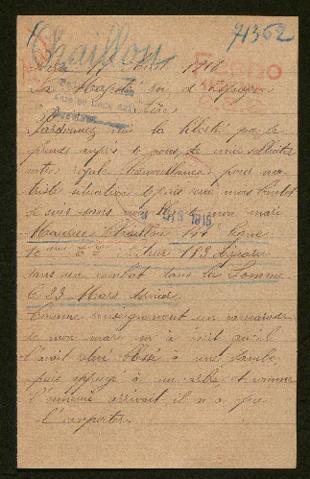 Chaillou 71362
17 Avril 1918
Sa Majesté le roi d'Espagne
Pardonnez moi la liberté que je
prends auprès de vous de venir solliciter
votre royale bienveillance pour ma
triste situation depuis un mois bientôt
je suis sans nouvelles de mon mari
Maurice Chaillou 144
10 Cie 183
dans un combat dans la Somme
le 23 Mars dernier
Comme renseignement un camarade
de mon mari m'a écrit qu'il
l'avait vu blessé à une jambe
puis appuyé à un arbre et comme
l'ennemi arrivait il n'a pu
l'emporter